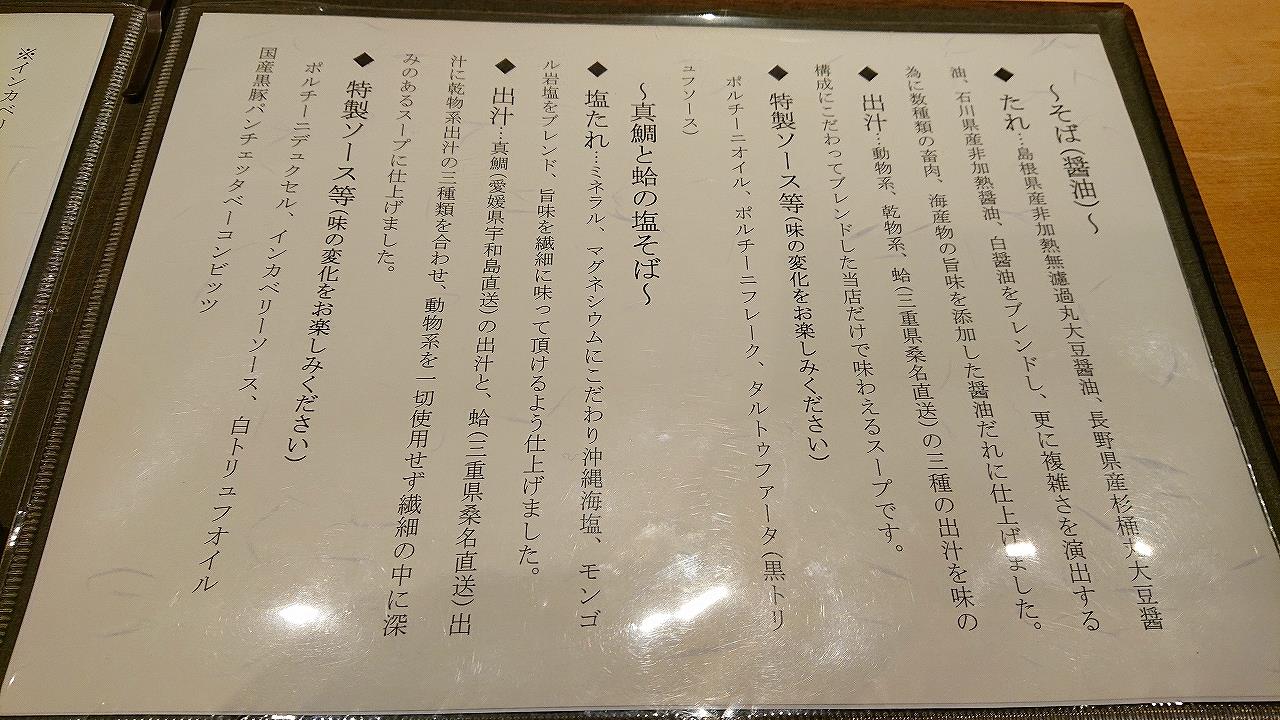 ～そば(醤油)～
◆ たれ…島根県産非加熱無濾過丸大豆醤油、長野県産杉桶丸大豆醤
油、石川県産非加熱醤油、白醤油をブレンドし、更に複雑さを演出する
為に数種類の畜肉、海産物の旨味を添加した醤油だれに仕上げました。
◆ 出汁…動物系、乾物系、蛤(三重県桑名直送)の三種の出汁を味の
構成にこだわってブレンドした当店だけで味わえるスープです。
◆ 特製ソース等(味の変化をお楽しみください)
ポルチーニオイル、ポルチーニフレーク、タルトゥファータ(黒トリ
ュフソース)
～真鯛と蛤の塩そば～
◆ 塩たれ…ミネラル、マグネシウムにこだわり沖縄海塩、モンゴ
ル岩塩をブレンド、旨味を繊細に味って頂けるよう仕上げました。
◆ 出汁…真鯛(愛媛県宇和島直送)の出汁と、蛤(三重県桑名直送)出
汁に乾物系出汁の三種類を合わせ、動物系を一切使用せず繊細の中に深
みのあるスープに仕上げました。
◆ 特製ソース等(味の変化をお楽しみください)
ポルチーニデュクセル、インカベリーソース、白トリュフオイル
国産黒豚パンチェッタベーコンビッツ
※インカベリ